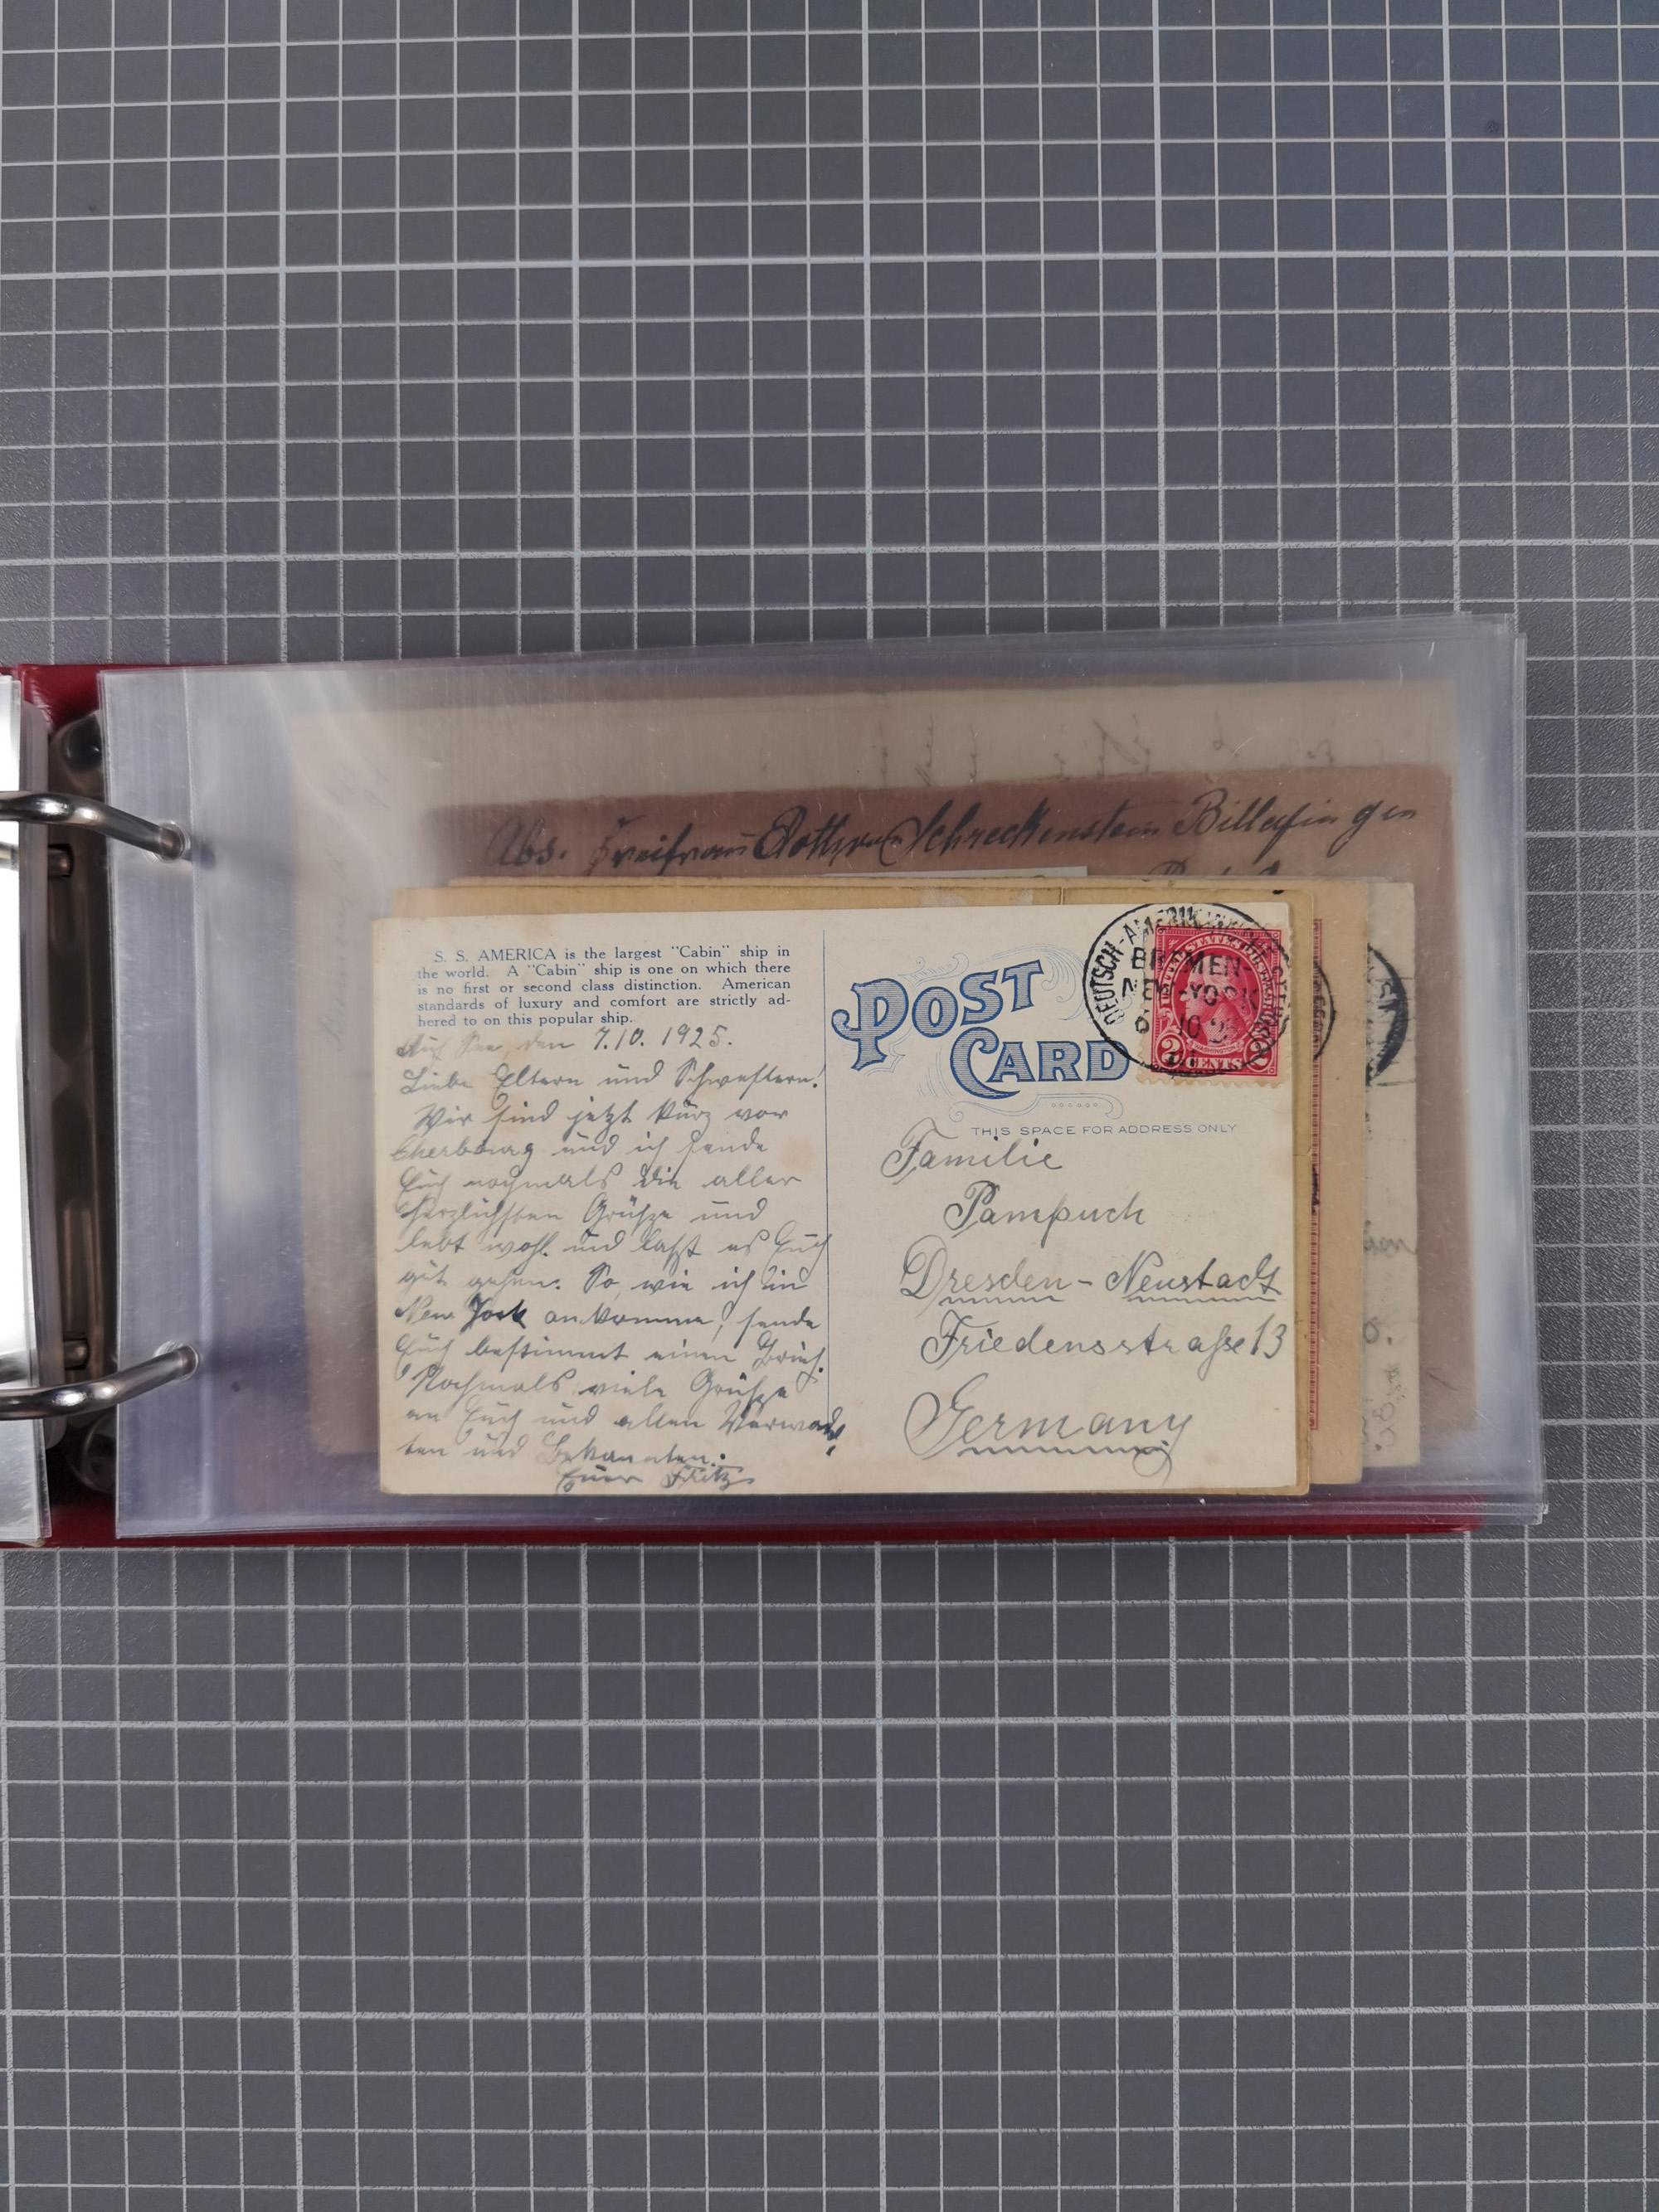 Abs. Freifrau Roth von Schreckenstein Billafingen
S. S. AMERICA is the largest "Cabin" ship in
the world. A "Cabin" ship is one on which there
is no first or second class distinction. American
standards of luxury and comfort are strictly ad-
hered to on this popular ship.
Auf See, den 7.10.1925.
Liebe Eltern und Schwestern!
Wir sind jetzt kurz vor
Cherbourg und ich sende
Euch nochmals die aller
herzlichsten Grüße und
lebt wohl und laßt es Euch
gut gehen. So, wie ich in
New York ankomme, sende
Euch bestimmt einen Brief.
Nochmals viele Grüße
an Euch und allen Verwand-
ten und Bekannten.
Euer Fritz
POST
CARD
THIS SPACE FOR ADDRESS ONLY
DEUTSCH-AMERIK
BREMEN-
NEW-YORK
10 25
UNITED STATES POSTAGE
WASHINGTON
2 CENTS 2
Familie
Pampuch
Dresden-Neustadt
Friedensstraße 13
Germany